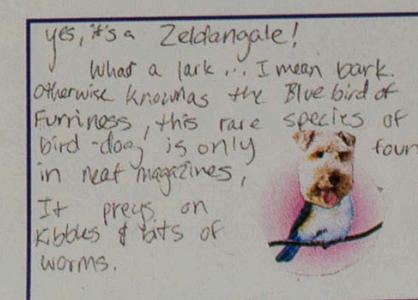 yes, it's a Zeldangale!
What a lark... I mean bark.
Otherwise known as the Blue bird of
Furriness, this rare species of
bird-dog is only foun
in neat magazines,
It preys on
Kibbles & bits of
worms.